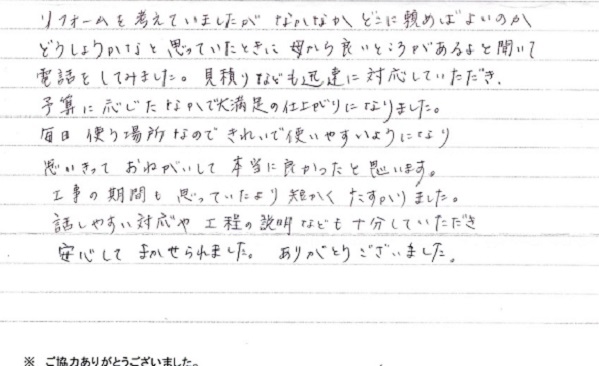 リフォームを考えていましたが なかなか どこに頼めばよいのか
どうしようかなと 思っていたときに 母から良いところがあるよと聞いて
電話をしてみました。見積りなども迅速に対応していただき、
予算に応じたなかで大満足の仕上がりになりました。
毎日 使う場所なので きれいで使いやすいようになり
思いきって おねがいして 本当に良かったと思います。
工事の期間も 思っていたより 短かく たすかりました。
話しやすい対応や 工程の説明なども十分していただき
安心して まかせられました。 ありがとうございました。
※ ご協力ありがとうございました。